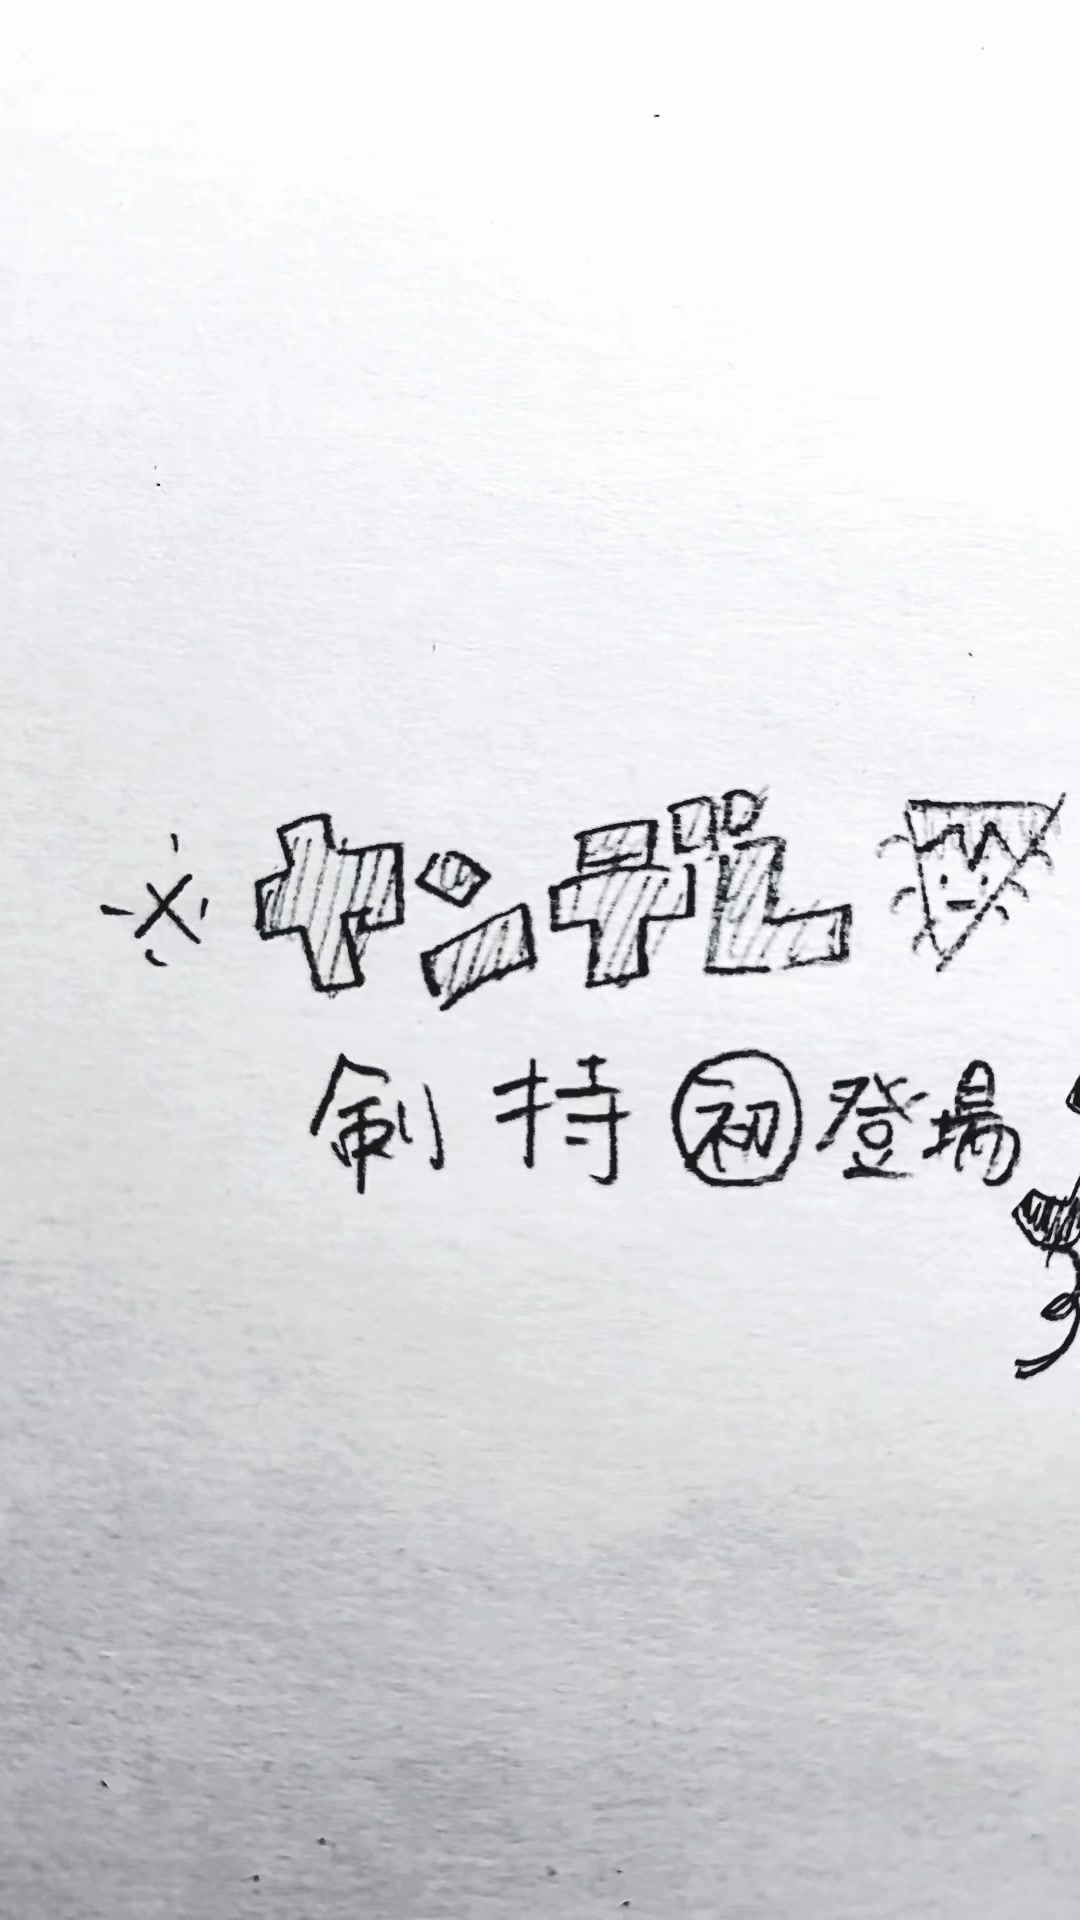 ※ヤンデレ
剣持初登場